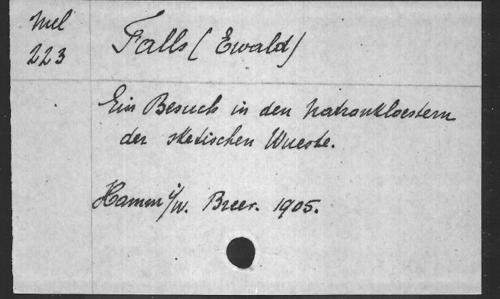 Mel
223
Falls (Ewald)
Ein Besuch in den Natronkloestern
der sketischen Wueste.
Hamm i/W. Breer. 1905.